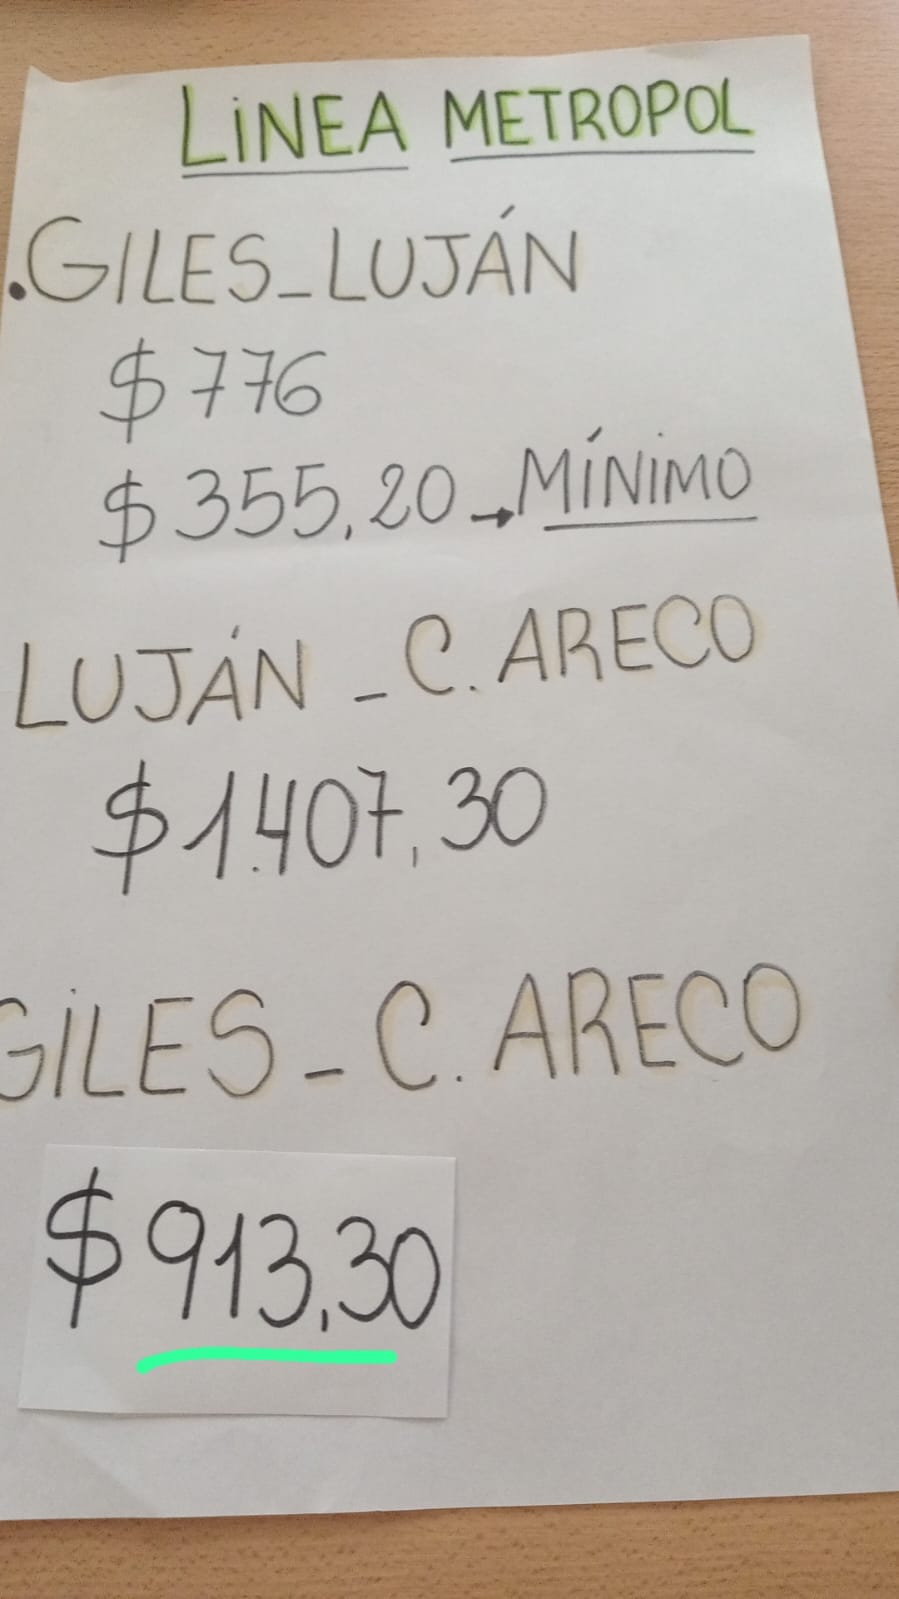 LINEA METROPOL
.GILES_LUJÁN
$776
$355,20→MÍNIMO
LUJÁN - C. ARECO
$1.407,30
GILES - C. ARECO
$913,30